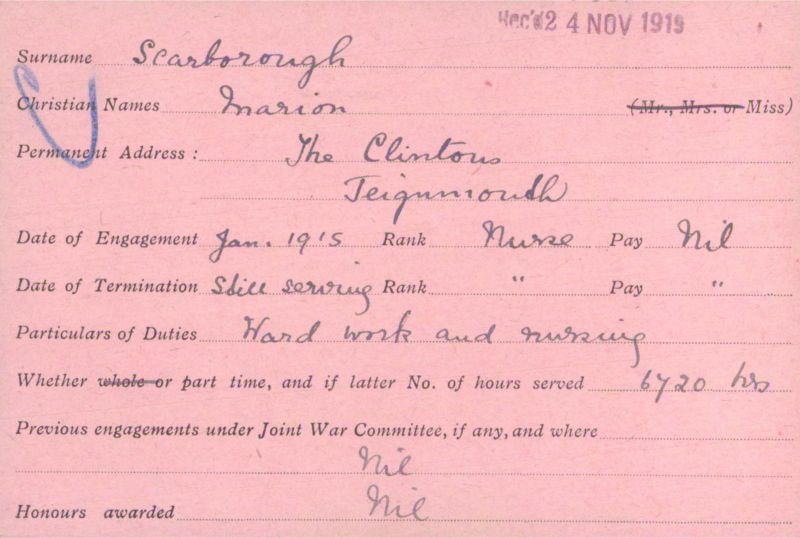 Rec'd 2 4 NOV 1919
Surname Scarborough
Christian Names Marion (Mr., Mrs. or Miss)
Permanent Address : The Clintons
Teignmouth
Date of Engagement Jan. 1915 Rank Nurse Pay Nil
Date of Termination Still serving Rank " Pay "
Particulars of Duties Ward work and nursing
Whether whole or part time, and if latter No. of hours served 6720 hrs
Previous engagements under Joint War Committee, if any, and where
Nil
Honours awarded Nil